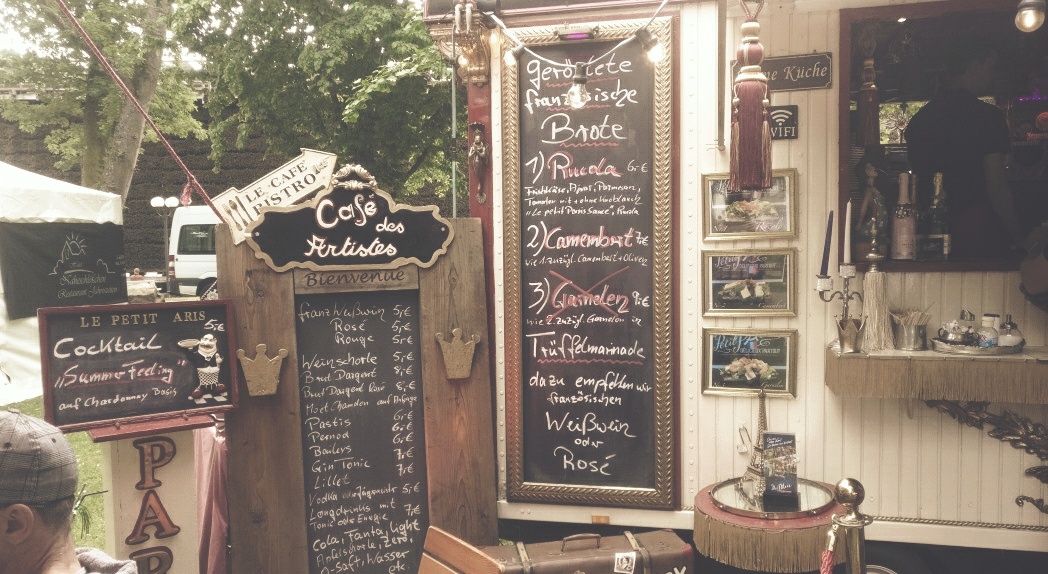 LE CAFE
BISTRO
Café
des
Artistes
Bienvenue
LE PETIT
Cocktail 5,-€
"Summerfeeling"
auf Chardonnay Basis
PAR
franz Weißwein 5,-€
Rosé 5,-€
Rouge 5,-€
Weinschorle 5,-€
Brut Dargent 8,-€
Brut Dargent Rosé 8,-€
Moet Chandon auf Anfrage
Pastis 6,-€
Pernod 6,-€
7,-€
Gin Tonic 7,-€
Lillet 7,-€
Vodka 5,-€
Longdrinks mit
Tonic oder Energie 7,-€
Cola, Fanta, light
Apfelschorle, Zero,
O-Saft, Wasser
etc.
geröstete
französische
Brote
1) Rucola 6,-€
Frischkäse, Parmesan,
Tomaten mit + ohne Knoblauch
"Le petit Paris Sauce", Rucola
2) Camembert 7,-€
wie 1. zuzügl. Camembert + Oliven
3) Garnelen 9,-€
wie 2. zuzügl. Garnelen in
Trüffelmarinade
dazu empfehlen wir
französischen
Weißwein
oder
Rosé
Küche
WiFi